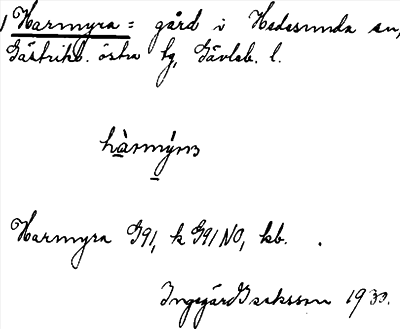 1 Harmyra = gård i Hedesunda sn,
Gästrikl. östra tg, Gävleb. l.
hàrmýra
Harmyra G91, k G91 NO, kb.
Ingegärd Isaksson 1930.